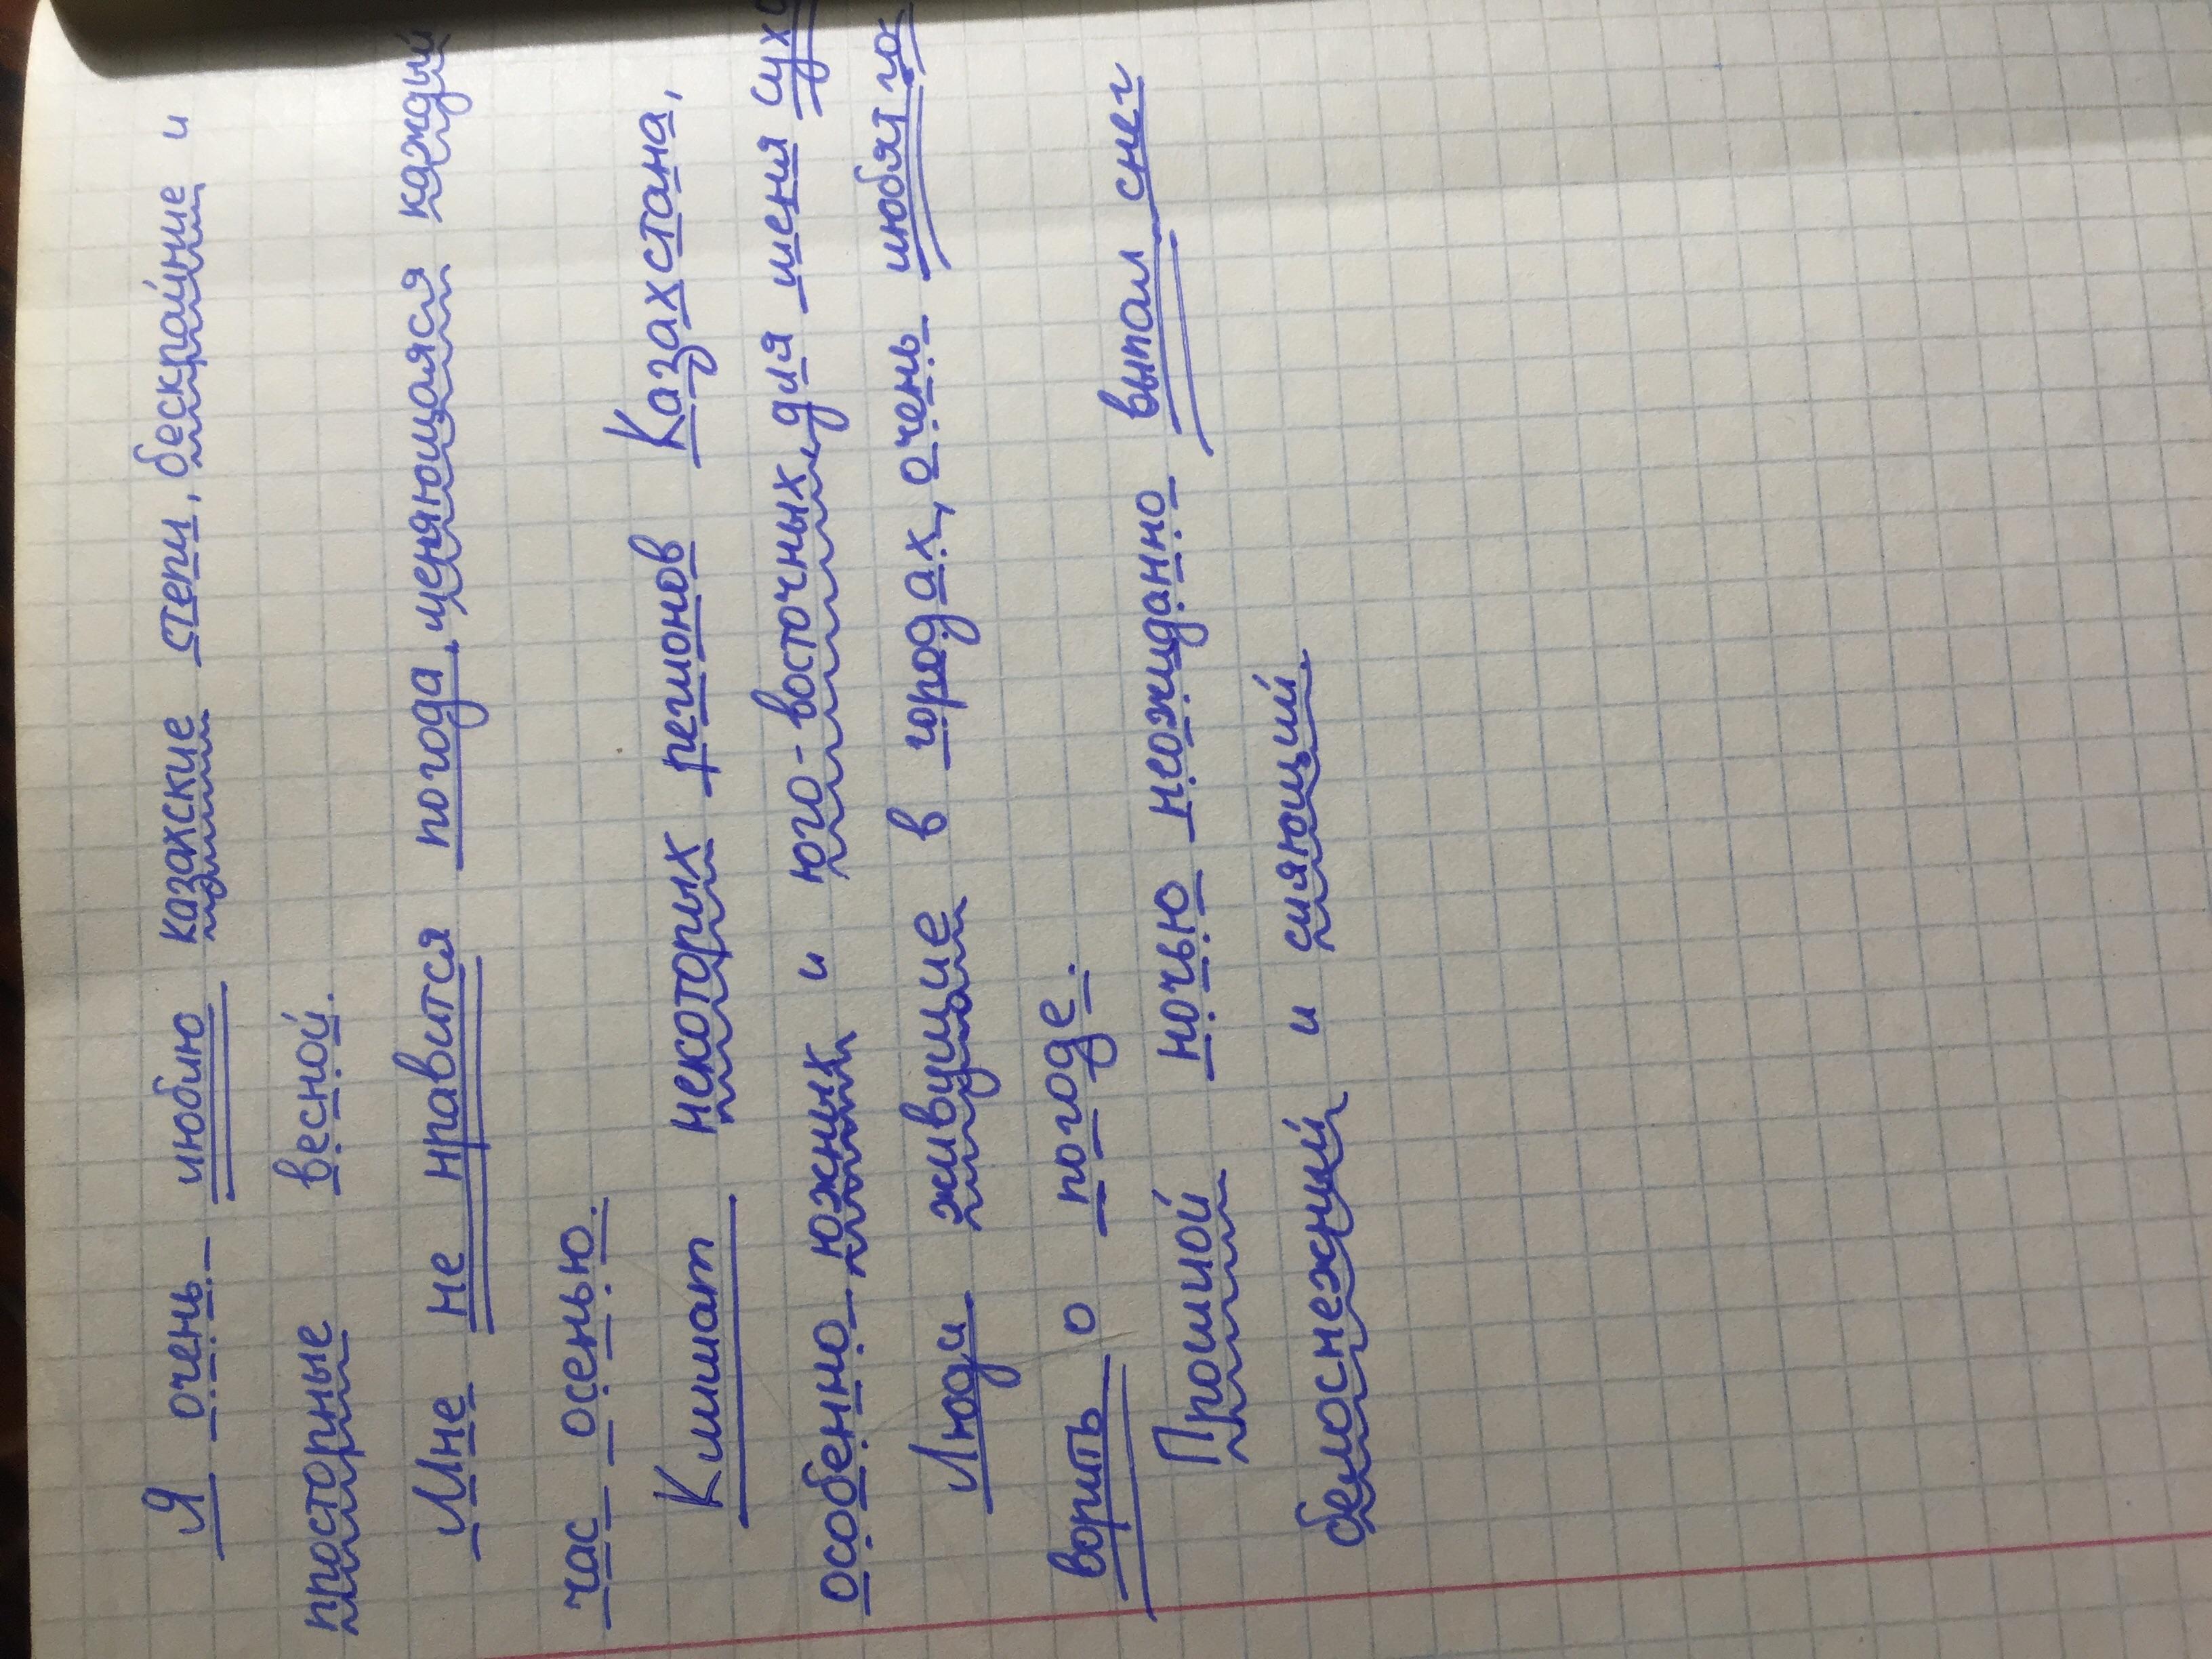 Я очень люблю казахские степи, бескрайние и
просторные весной.
Мне не нравится погода, меняющаяся каждый
час осенью.
Климат некоторых регионов Казахстана,
особенно южных и юго-восточных, для меня сух
Люди живущие в городах, очень любят го
ворить о погоде.
Прошлой ночью неожиданно выпал снег
белоснежний и сияющий.